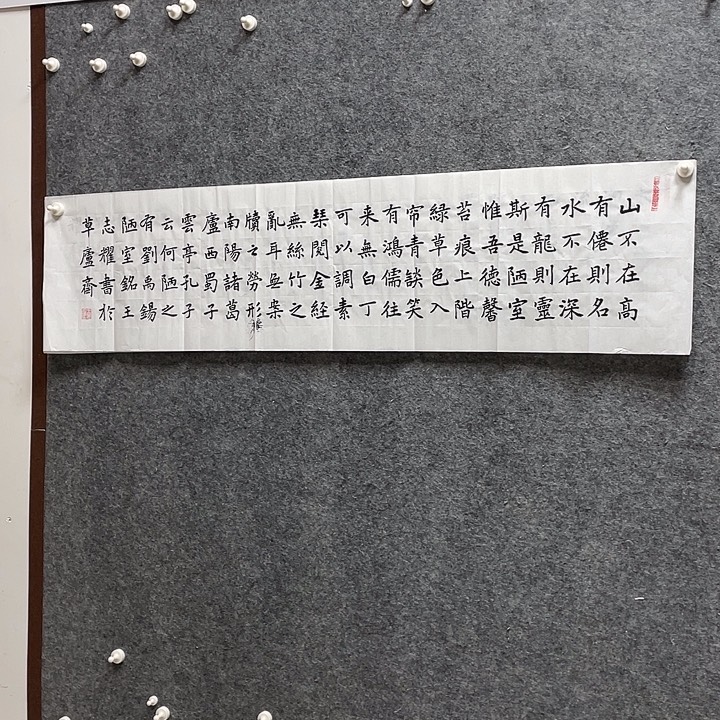 山不在高
有僊則名
水不在深
有龍則靈
斯是陋室
惟吾德馨
苔痕上階
綠草色入
帘青談笑
有鴻儒往
来無白丁
可以調素
琴閲金経
無絲竹之
亂耳無案
牘之勞形
南陽諸葛
廬西蜀子
雲亭孔子
云何陋之
有劉禹錫
陋室銘王
志耀書於
草廬齋